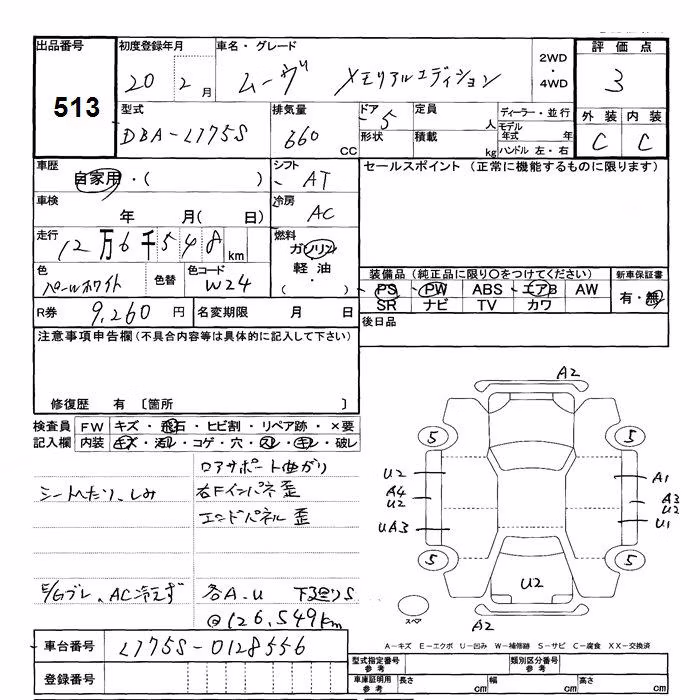 出品番号 初度登録年月 車名・グレード 2WD・4WD 評価点
513 20 2月 ムーヴ メモリアルエディション 3
型式 排気量 ドア 定員 ディーラー・並行 外装 内装
DBA-L175S 660 CC 5 人 モデル年式 年 C C
形状 積載 kg ハンドル 左・右
車歴 シフト セールスポイント (正常に機能するものに限ります)
自家用・( ) AT
車検 冷房
年 月( 日) AC
走行 燃料
12万6千548km ガソリン
軽油
( ・ )
色 色替 色コード 装備品(純正品に限り○をつけてください) 新車保証書
パールホワイト W24 PS PW ABS エアB AW 有・無
SR ナビ TV カワ
R券 9,260円 名変期限 月 日 後日品
注意事項申告欄(不具合内容等は具体的に記入して下さい)
修復歴 有 〔箇所 〕
検査員 FW キズ・飛石・ヒビ割・リペア跡・×要
記入欄 内装 キズ・汚レ・コゲ・穴・スレ・キレ・破レ
コアサポート曲がり
シートへたり、しみ 右Fインパネ歪
エンドパネル歪
E/Gブレ、AC冷えず 各A.U 下廻りS
@126,549km
車台番号 L175S-0128556
登録番号
A2
5 5
U2 A1
A4 A3
U2 U2
UA3 U1
5 5
U2
スペア A2
A-キズ E-エクボ U-凹み W-補修跡 S-サビ C-腐食 XX-交換済
型式指定番号 参考 類別区分番号 参考
車庫証明用 参考 長さ cm 幅 cm 高さ cm